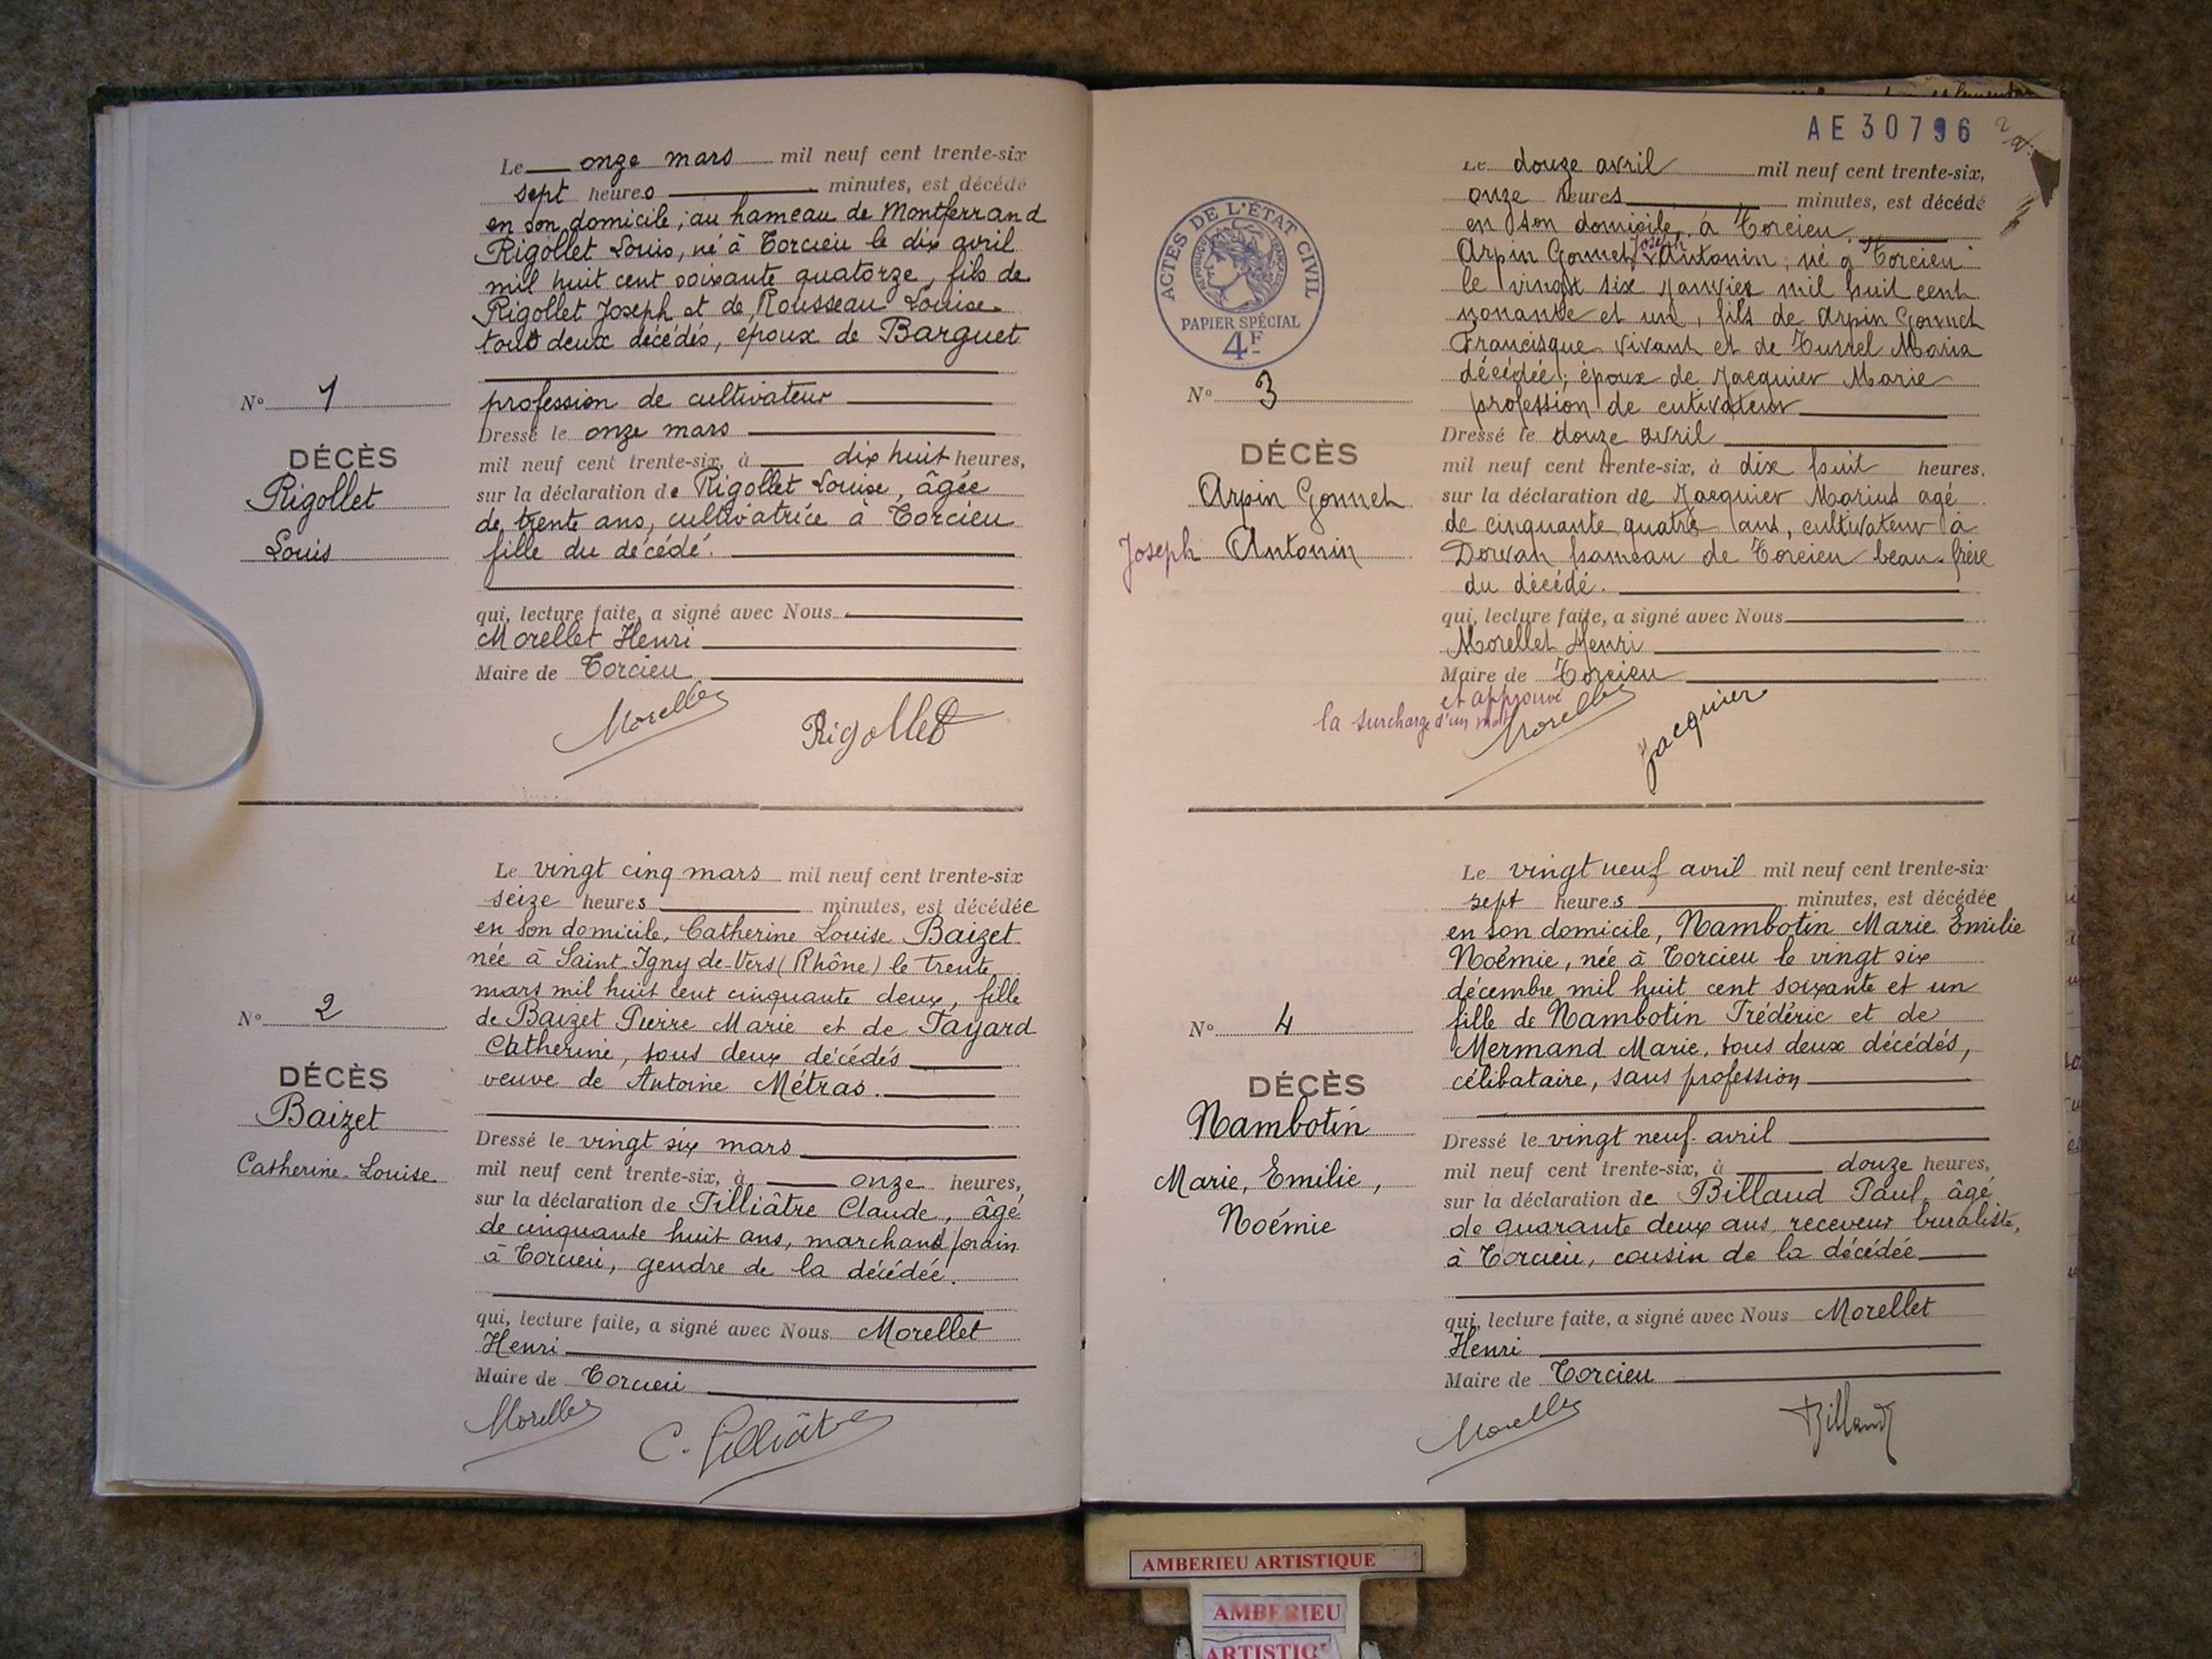 Le onze mars mil neuf cent trente-six
sept heures minutes, est décédé
en son domicile, au hameau de Montferrand
Rigollet Louis, né à Torcieu le dix avril
mil huit cent soixante quatorze, fils de
Rigollet Joseph et de Rousseau Louise
tous deux décédés, époux de Barguet
profession de cultivateur
Dressé le onze mars
mil neuf cent trente-six, à dix huit heures,
sur la déclaration de Rigollet Louise, âgée
de trente ans, cultivatrice à Torcieu
fille du décédé.
qui, lecture faite, a signé avec Nous
Morellet Henri
Maire de Torcieu
Morellet Rigollet
No 1
DÉCÈS
Rigollet
Louis
Le vingt cinq mars mil neuf cent trente-six
seize heures minutes, est décédée
en son domicile, Catherine Louise Baizet
née à Saint-Igny-de-Vers (Rhône) le trente
mars mil huit cent cinquante deux, fille
de Baizet Pierre Marie et de Fayard
Catherine, tous deux décédés
veuve de Antoine Métras.
Dressé le vingt six mars
mil neuf cent trente-six, à onze heures,
sur la déclaration de Tilliâtre Claude, âgé
de cinquante huit ans, marchand forain
à Torcieu, gendre de la décédée.
qui, lecture faite, a signé avec Nous Morellet
Henri
Maire de Torcieu
Morellet C. Tilliâtre
No 2
DÉCÈS
Baizet
Catherine-Louise
AE 30796
Le douze avril mil neuf cent trente-six,
onze heures minutes, est décédé
en son domicile, à Torcieu
Joseph
Arpin Gonnet Antonin, né à Torcieu
le vingt six janvier mil huit cent
nonante et un, fils de Arpin Gonnet
Francisque vivant et de Turrel Maria
décédée, époux de Jacquier Marie
profession de cutivateur
Dressé le douze avril
mil neuf cent trente-six, à dix huit heures.
sur la déclaration de Jacquier Marius agé
de cinquante quatre ans, cultivateur à
Dorvan hameau de Torcieu beau-frère
du décédé.
qui, lecture faite, a signé avec Nous
Morellet Henri
Maire de Torcieu
et approuvé
la surcharge d'un mot
Morellet Jacquier
ACTES DE L'ÉTAT CIVIL
RÉPUBLIQUE FRANÇAISE
PAPIER SPÉCIAL
4F
No 3
DÉCÈS
Arpin Gonnet
Joseph Antonin
Le vingt neuf avril mil neuf cent trente-six
sept heures minutes, est décédée
en son domicile, Nambotin Marie Emilie
Noémie, née à Torcieu le vingt six
décembre mil huit cent soixante et un
fille de Nambotin Frédéric et de
Mermand Marie, tous deux décédés,
célibataire, sans profession
Dressé le vingt neuf avril
mil neuf cent trente-six, à douze heures,
sur la déclaration de Billaud Paul, âgé
de quarante deux ans, receveur buraliste,
à Torcieu, cousin de la décédée
qui, lecture faite, a signé avec Nous Morellet
Henri
Maire de Torcieu
Morellet Billaud
No 4
DÉCÈS
Nambotin
Marie, Emilie,
Noémie
AMBERIEU ARTISTIQUE
AMBERIEU
ARTISTIQ